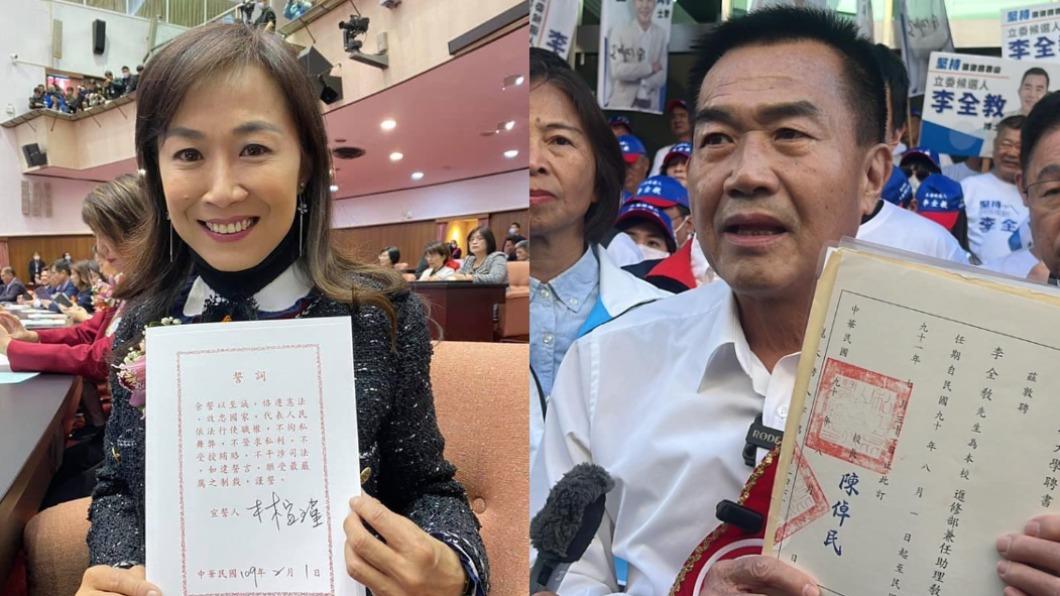 誓詞
余誓以至誠，恪遵憲法
，效忠國家，代表人民
依法行使職權，不徇私
舞弊，不營求私利，不
受授賄賂，不干涉司法
。如違誓言，願受最嚴
厲之制裁，謹誓。
宣誓人 林宜瑾
中華民國109年2月1日
堅持
立委候選人
李全教
堅持
立委候選人
李全教
堅持
李全教
RODE
大學聘書
茲敦聘
李全教先生為本校 進修部兼任助理教
任期自民國九十 年 八 月 一 日起至民
九十一年
日止此訂
校長 陳倬民
中華民國九十 年